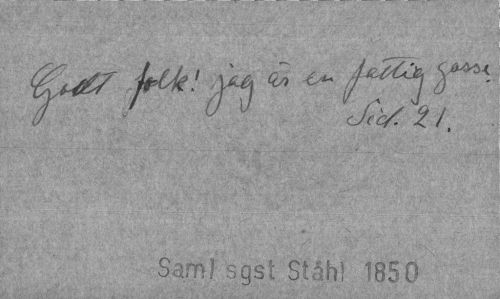 Godt folk! jag är en fattig gosse.
Sid. 21.
Saml sgst Ståhl 1850